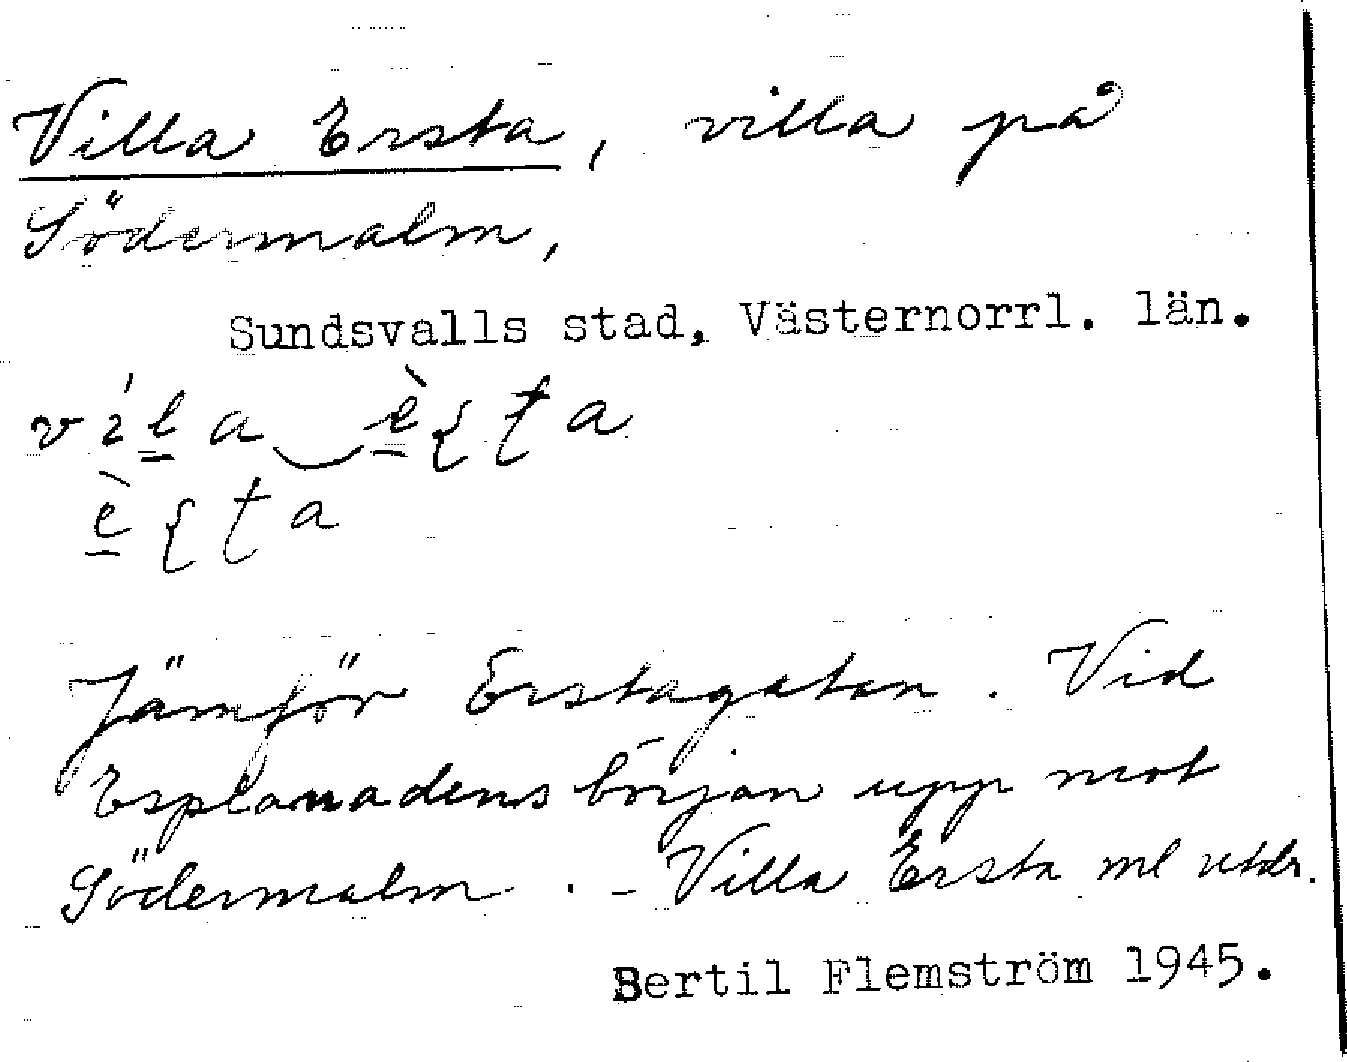 Villa Ersta, villa på
Södermalm,
Sundsvalls stad, Västernorrl. län.
vi´l̳a‿è̲ʂʈa
è̲ʂʈa
Jämför Erstagatan. Vid
Esplanadens början upp mot
Södermalm. - Villa Ersta ml utdr.
Bertil Flemström 1945.